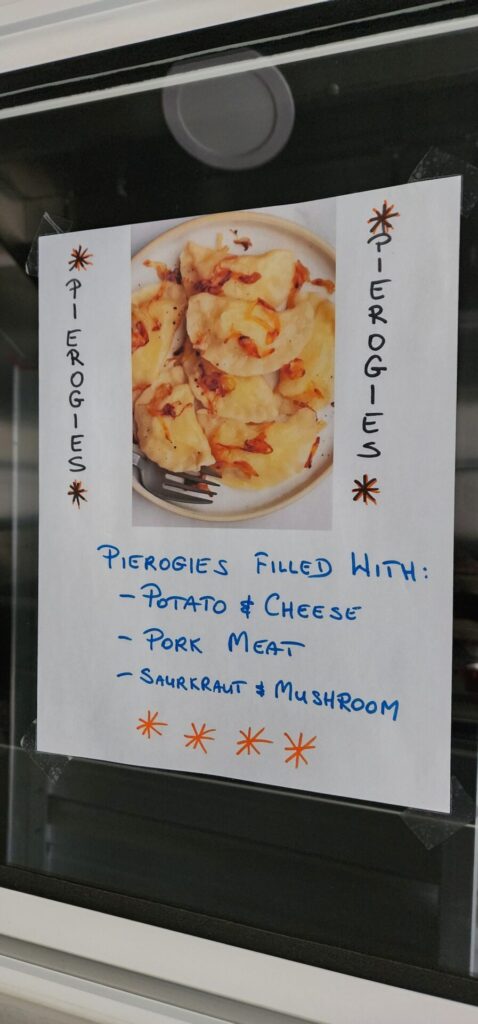 PIEROGIES
PIEROGIES
PIEROGIES FILLED WITH:
- POTATO & CHEESE
- PORK MEAT
- SAURKRAUT & MUSHROOM